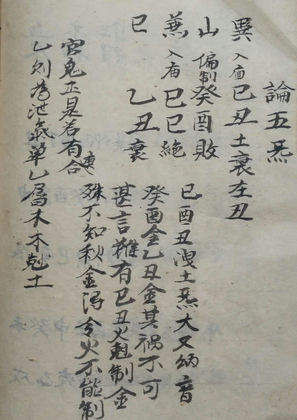 論五炁
巽入庙己丑土衰在丑
山偏制癸酉敗
兼入庙巳巳絶
巳 乙丑衰
巳酉丑洩土炁大又納音
癸酉金乙丑金其禍不可
甚言雖有己丑火尅制金
殊不知秋金得令火不能制
官鬼正是若有合
乙則為泄氣單乙屬木木尅土